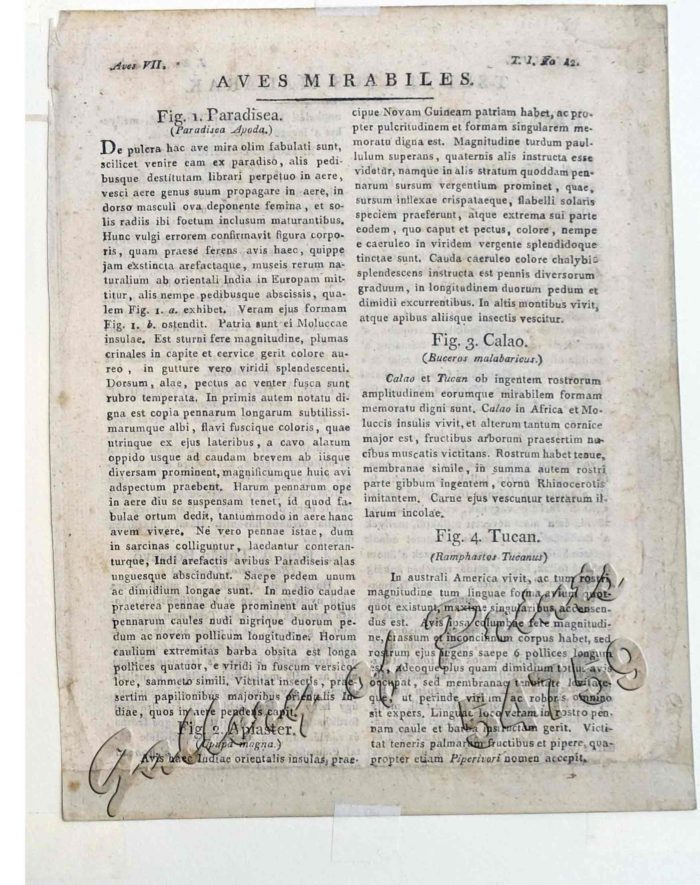 Aves VII.
T. I. No 42.
AVES MIRABILES.
Fig. 1. Paradisea.
(Paradisea Apoda.)
De pulcra hac ave mira olim fabulati sunt,
scilicet venire eam ex paradiso, alis pedi-
busque destitutam librari perpetuo in aere,
vesci aere genus suum propagare in aere, in
dorso masculi ova deponente femina, et so-
lis radiis ibi foetum inclusum maturantibus.
Hunc vulgi errorem confirmavit figura corpo-
ris, quam praese ferens avis haec, quippe
jam exstincta arefactaque, museis rerum na-
turalium ab orientali India in Europam mit-
titur, alis nempe pedibusque abscissis, qua-
lem Fig. 1. a. exhibet. Veram ejus formam
Fig. 1. b. ostendit. Patria sunt ei Moluccae
insulae. Est sturni fere magnitudine, plumas
crinales in capite et cervice gerit colore au-
reo, in gutture vero viridi splendescenti.
Dorsum, alae, pectus ac venter fusca sunt
rubro temperata. In primis autem notatu di-
gna est copia pennarum longarum subtilissi-
marumque albi, flavi fuscique coloris, quae
utrinque ex ejus lateribus, a cavo alarum
oppido usque ad caudam brevem ab iisque
diversam prominent, magnificumque huic avi
adspectum praebent. Harum pennarum ope
in aere diu se suspensam tenet, id quod fa-
bulae ortum dedit, tantummodo in aere hanc
avem vivere. Ne vero pennae istae, dum
in sarcinas colliguntur, laedantur conteran-
turque, Indi arefactis avibus Paradiseis alas
unguesque abscindunt. Saepe pedem unum
ac dimidium longae sunt. In medio caudae
praeterea pennae duae prominent aut potius
pennarum caules nudi nigrique duorum pe-
dum ac novem pollicum longitudine. Horum
caulium extremitas barba obsita est longa
pollices quatuor, e viridi in fuscum versico-
lore, sammeto simili. Victitat insectis, prae-
sertim papilionibus majoribus orientalis In-
diae, quos in aere pendens capit.
Fig. 2. Apiaster.
(Upupa magna.)
Avis haec Indiae orientalis insulas, prae-
cipue Novam Guineam patriam habet, ac pro-
pter pulcritudinem et formam singularem me-
moratu digna est. Magnitudine turdum paul-
lulum superans, quaternis alis instructa esse
videtur, namque in alis stratum quoddam pen-
narum sursum vergentium prominet, quae,
sursum inflexae crispataeque, flabelli solaris
speciem praeferunt, atque extrema sui parte
eodem, quo caput et pectus, colore, nempe
e caeruleo in viridem vergente splendidoque
tinctae sunt. Cauda caeruleo colore chalybis
splendescens instructa est pennis diversorum
graduum, in longitudinem duorum pedum et
dimidii excurrentibus. In altis montibus vivit,
atque apibus aliisque insectis vescitur.
Fig. 3. Calao.
(Buceros malabaricus.)
Calao et Tucan ob ingentem rostrorum
amplitudinem eorumque mirabilem formam
memoratu digni sunt. Calao in Africa et Mo-
luccis insulis vivit, et alterum tantum cornice
major est, fructibus arborum praesertim nu-
cibus muscatis victitans. Rostrum habet tenue,
membranae simile, in summa autem rostri
parte gibbum ingentem, cornu Rhinocerotis
imitantem. Carne ejus vescuntur terrarum il-
larum incolae.
Fig. 4. Tucan.
(Ramphastos Tucanus)
In australi America vivit, ac tum rostri
magnitudine tum linguae forma avium quot-
quot existunt, maxime singularibus accensen-
dus est. Avis est columbae fere magnitudi-
ne, crassum et inconcinnum corpus habet, sed
rostrum ejus ingens saepe 6 pollices longum
est, adeoque plus quam dimidium totius avis
occupat, sed membranae instar levitate-
que, ut perinde virium ac roboris omnino
sit expers. Linguae loco veram in rostro pen-
nam caule et barba instructam gerit. Victi-
tat teneris palmarum fructibus et pipere, qua-
propter etiam Piperivori nomen accepit.
Gallery of Prints
541759